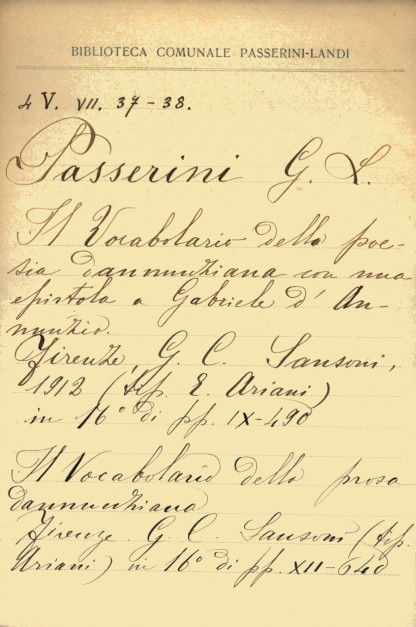 BIBLIOTECA COMUNALE PASSERINI-LANDI
4 V. VII. 37-38.
Passerini G. L.
Il Vocabolario della poe-
sia dannunziana con una
epistola a Gabriele d'An-
nunzio.
Firenze, G. C. Sansoni,
1912 (tip. E. Ariani)
in 16° di pp. IX-490
Il Vocabolario della prosa
dannunziana
Firenze. G. C. Sansoni (tip.
Ariani) in 16° di pp. XII-640